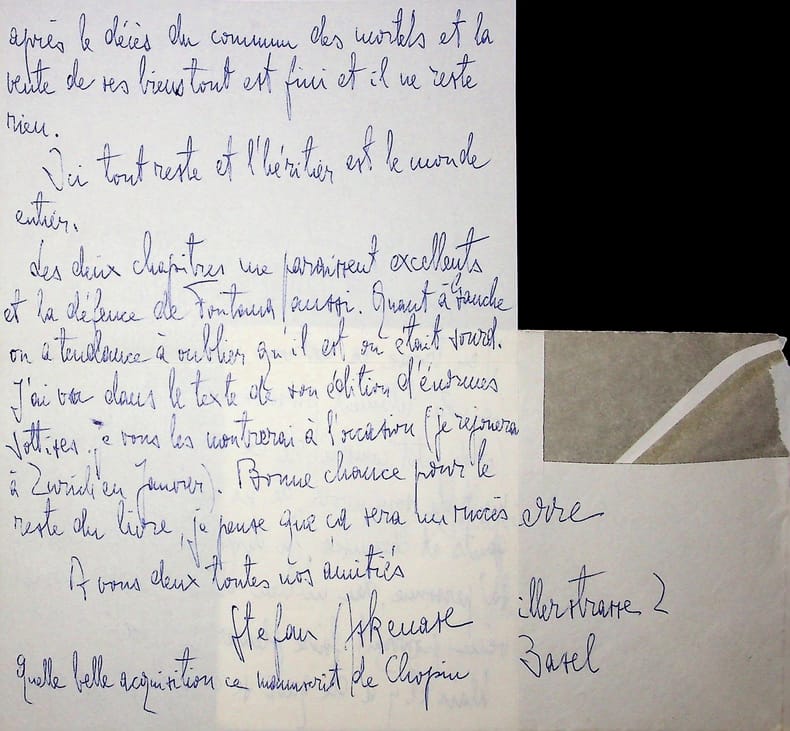 après le décès du commun des mortels et la
vente de ses biens tout est fini et il ne reste
rien.
Ici tout reste et l'héritier est le monde
entier.
Les deux chapitres me paraissent excellents
et la défence de Fontana aussi. Quant à Ganche
on a tendance à oublier qu'il est ou était sourd.
J'ai vu dans le texte de son édition d'énormes
sottises. je vous les montrerai à l'occasion (je rejouerai
à Zurich en Janvier). Bonne chance pour le
reste du livre, je pense que ca sera un succès
A vous deux toutes nos amitiés
Stefan Askenase
Quelle belle acquisition ce manuscrit de Chopin
illerstrasse 2
Basel